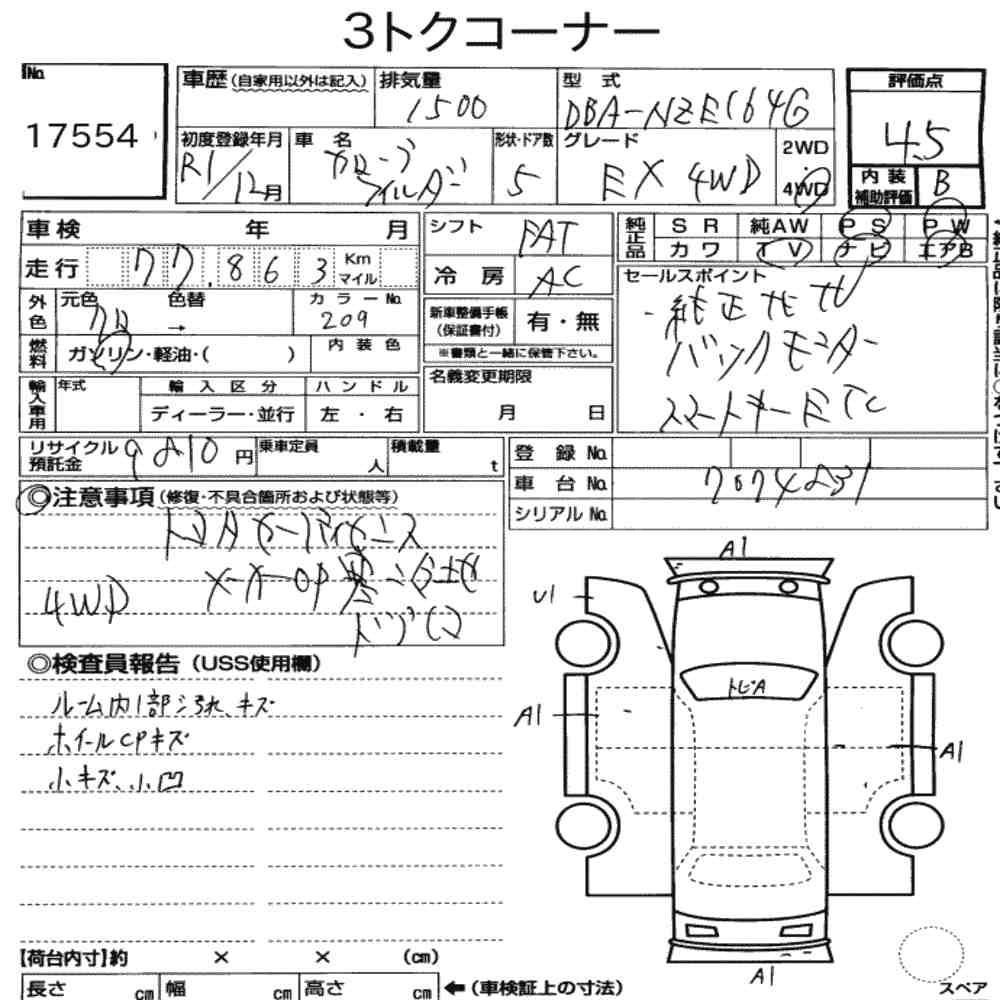 3トクコーナー
No.
17554
車歴 (自家用以外は記入)
排気量
1500
型式
DBA-NZE164G
評価点
4.5
内装補助評価 B
初度登録年月
R1/12月
車名
カローラ
フィルダー
形状・ドア数
5
グレード
EX 4WD
2WD
4WD
車検 年 月
走行 77,863 Km マイル
外色 元色 クロ → 色替
カラーNo. 209
燃料 ガソリン・軽油・( )
内装色
輸入車用 年式
輸入区分
ディーラー・並行
ハンドル
左・右
シフト FAT
冷房 AC
新車整備手帳(保証書付) 有・無
※書類と一緒に保管下さい。
名義変更期限
月 日
純正品 SR 純AW PS PW
カワ TV ナビ エアB
セールスポイント
純正ナビTV
バックモニター
スマートキー ETC
リサイクル預託金 円
乗車定員 人
積載量 t
登録No.
車台No. 7074231
シリアルNo.
◎注意事項 (修復・不具合箇所および状態等)
4WD
◎検査員報告 (USS使用欄)
ルーム内1部ヨゴレ、キズ
ホイールCPキズ
小キズ、小凹
A1
U1
トビA
A1
A1
A1
【荷台内寸】約 × × (cm)
長さ cm 幅 cm 高さ cm ←(車検証上の寸法)
スペア